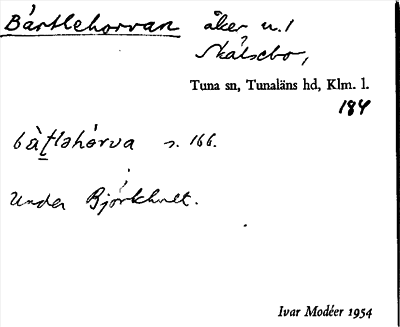 Bärtlehorvan åker u. l
Skälsebo,
Tuna sn, Tunaläns hd, Klm. l.
184
bà̱t̠ləhórva s. 166.
Under Björkhult.
Ivar Modéer 1954